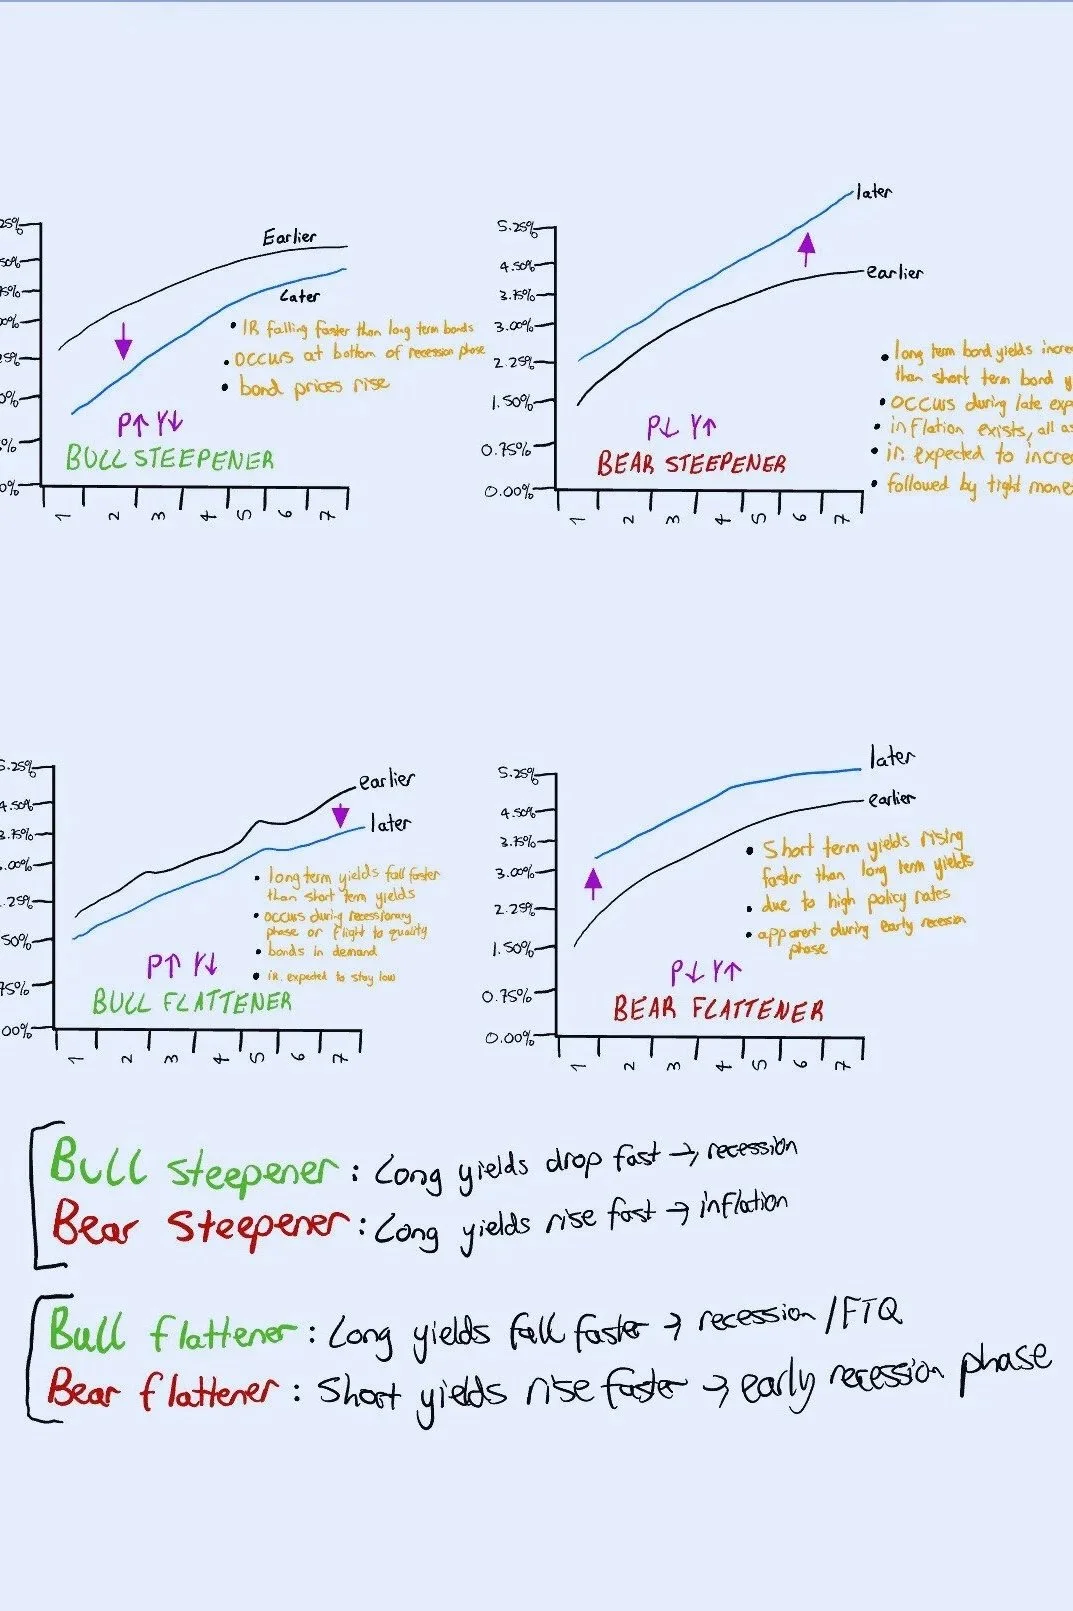 Earlier
Later
• IR falling faster than long term bonds
• occurs at bottom of recession phase
• bond prices rise
P↑ Y↓
BULL STEEPENER
25%
50%
75%
00%
25%
0%
%
0%
1 2 3 4 5 6 7
later
earlier
5.25%
4.50%
3.75%
3.00%
2.25%
1.50%
0.75%
0.00%
• long term bond yields incre
than short term bond y
• occurs during late exp
• inflation exists, all as
• ir. expected to incre
• followed by tight mone
P↓ Y↑
BEAR STEEPENER
1 2 3 4 5 6 7
5.25%
4.50%
3.75%
.00%
.25%
50%
75%
00%
earlier
later
• long term yields fall faster
than short term yields
• occurs during recessionary
phase or flight to quality
• bonds in demand
• ir. expected to stay low
P↑ Y↓
BULL FLATTENER
1 2 3 4 5 6 7
5.25%
4.50%
3.75%
3.00%
2.25%
1.50%
0.75%
0.00%
later
earlier
• Short term yields rising
faster than long term yields
• due to high policy rates
• apparent during early recession
phase
P↓ Y↑
BEAR FLATTENER
1 2 3 4 5 6 7
Bull steepener: Long yields drop fast → recession
Bear steepener: Long yields rise fast → inflation
Bull flattener: Long yields fall faster → recession/FTQ
Bear flattener: Short yields rise faster → early recession phase